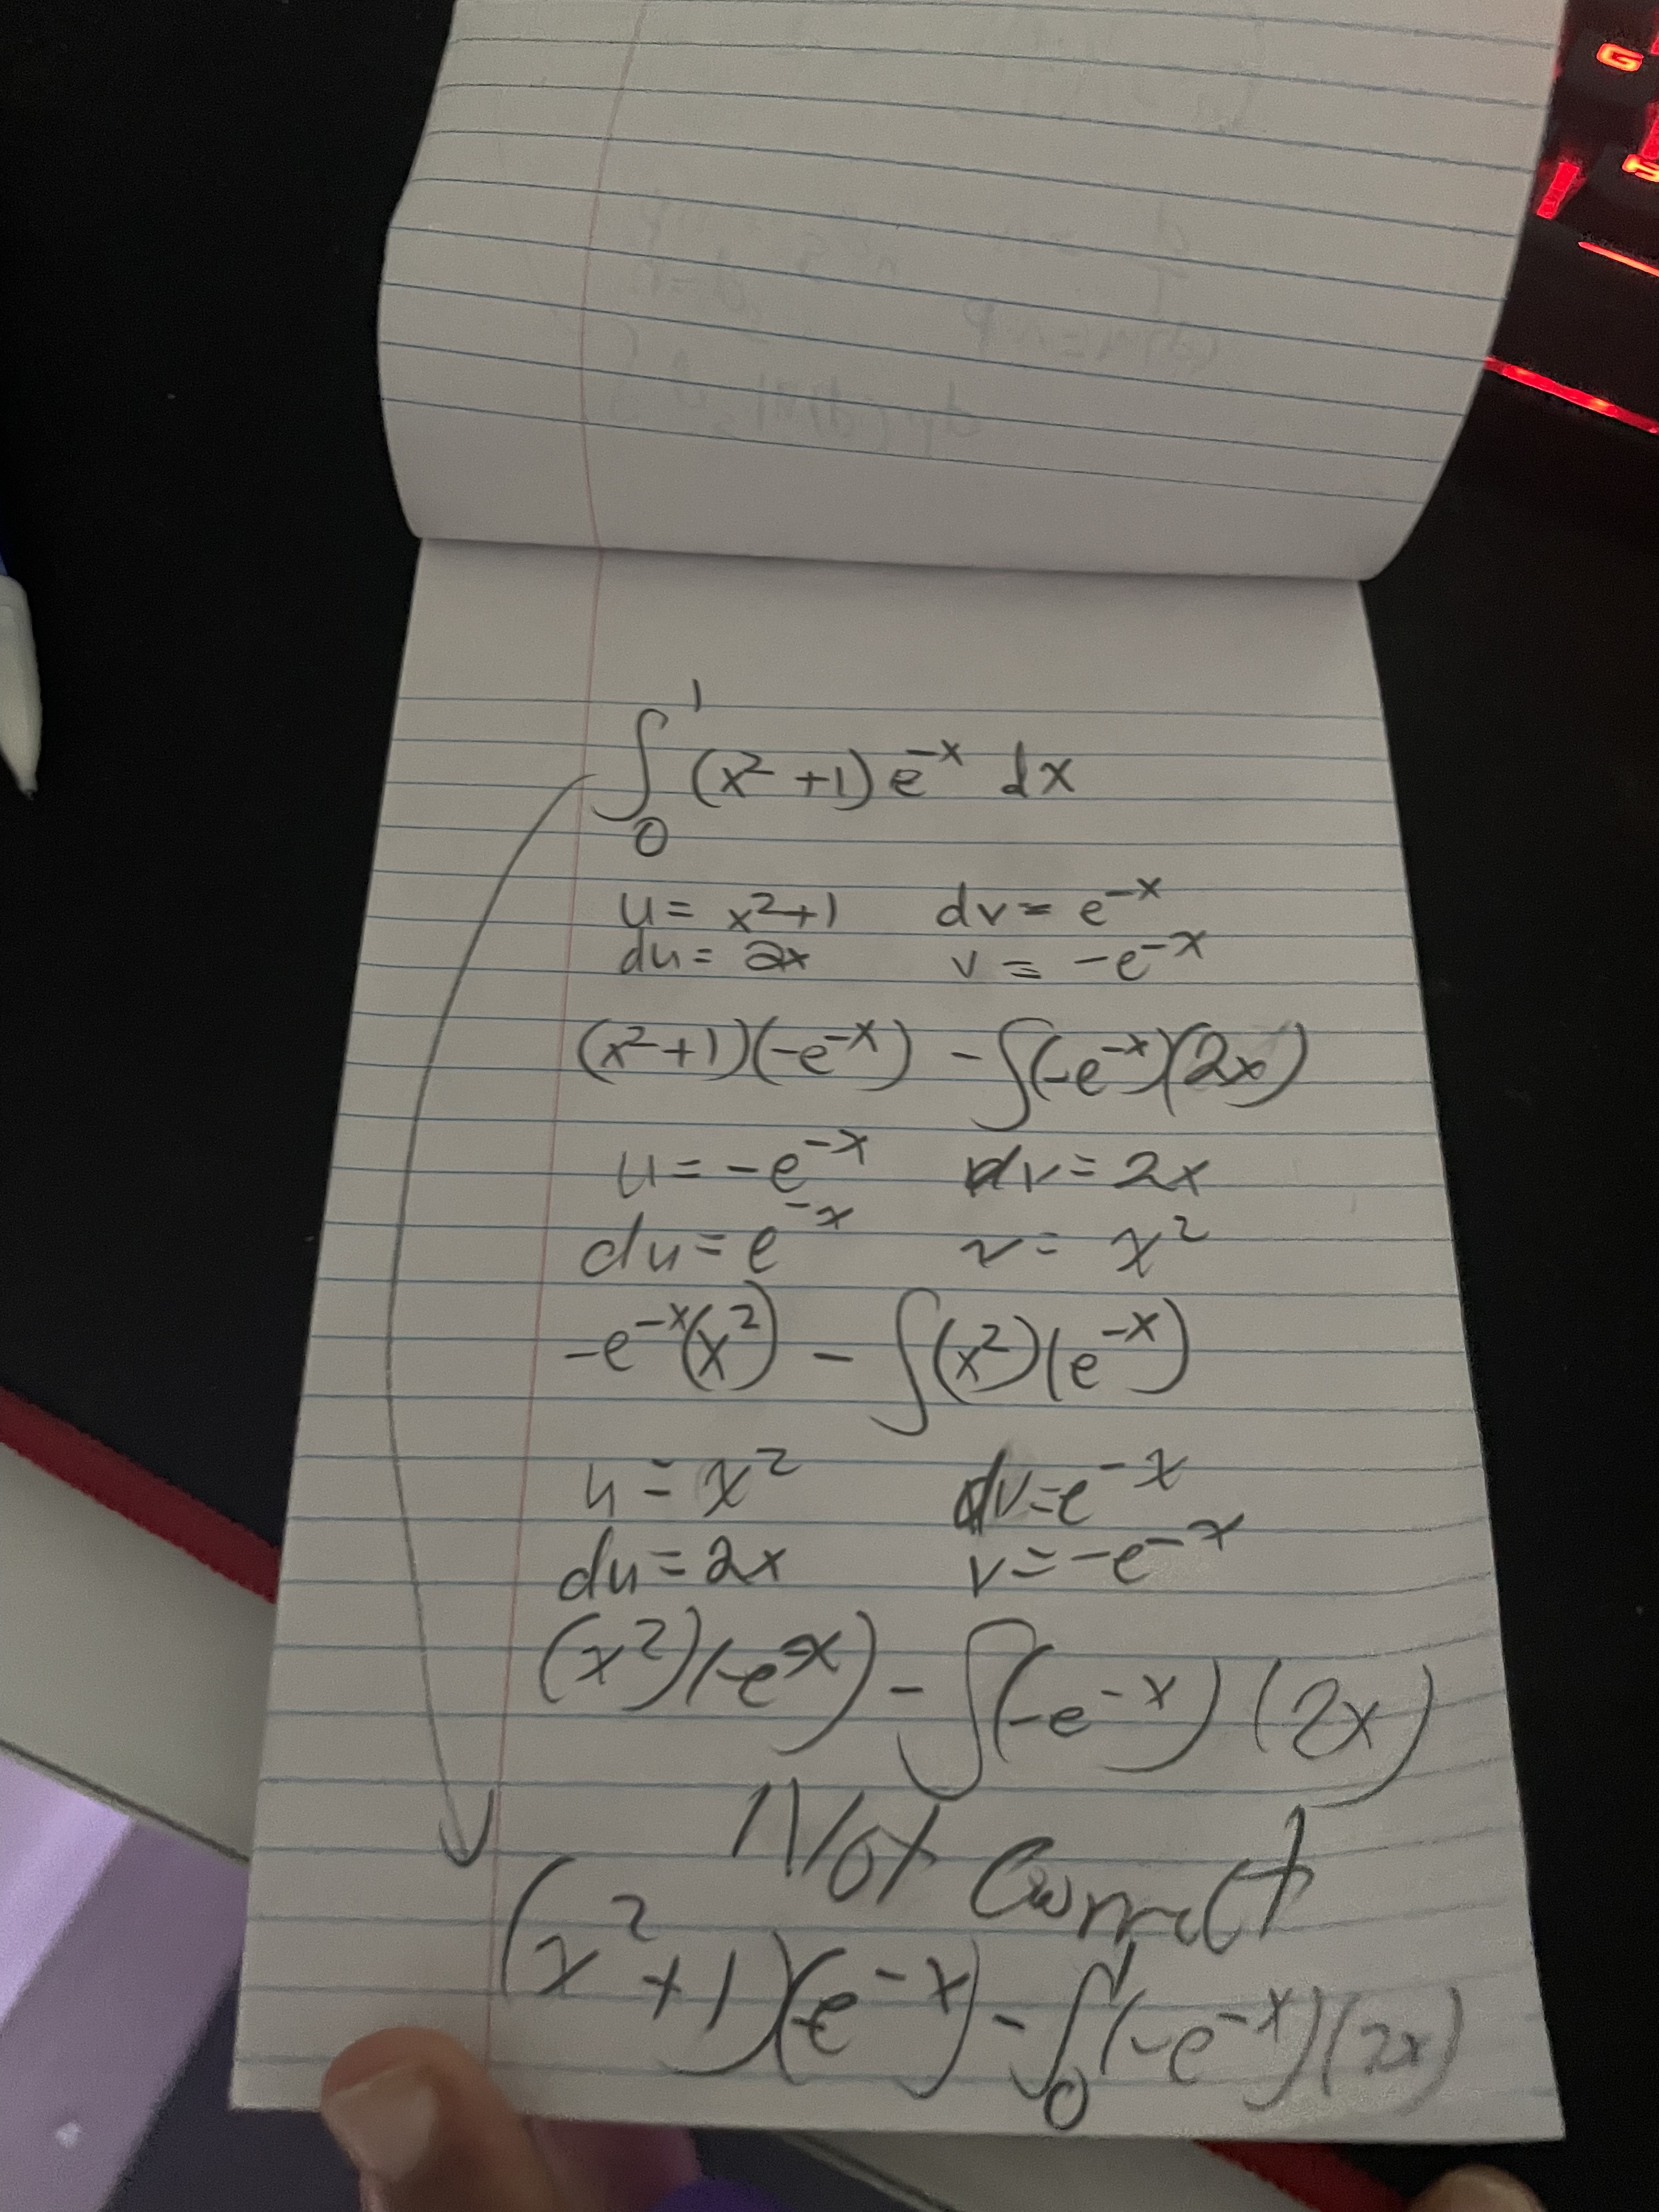 ∫₀¹ (x² + 1) e^{-x} dx
u = x²+1 dv = e^{-x}
du = 2x v = -e^{-x}
(x²+1)(-e^{-x}) - ∫(-e^{-x})(2x)
u = -e^{-x} dv = 2x
du = e^{-x} v = x²
-e^{-x}(x²) - ∫(x²)(e^{-x})
u = x² dv = e^{-x}
du = 2x v = -e^{-x}
(x²)(-e^{-x}) - ∫(-e^{-x})(2x)
Not Correct
(x²+1)(-e^{-x}) - ∫₀¹(-e^{-x})(2x)
G